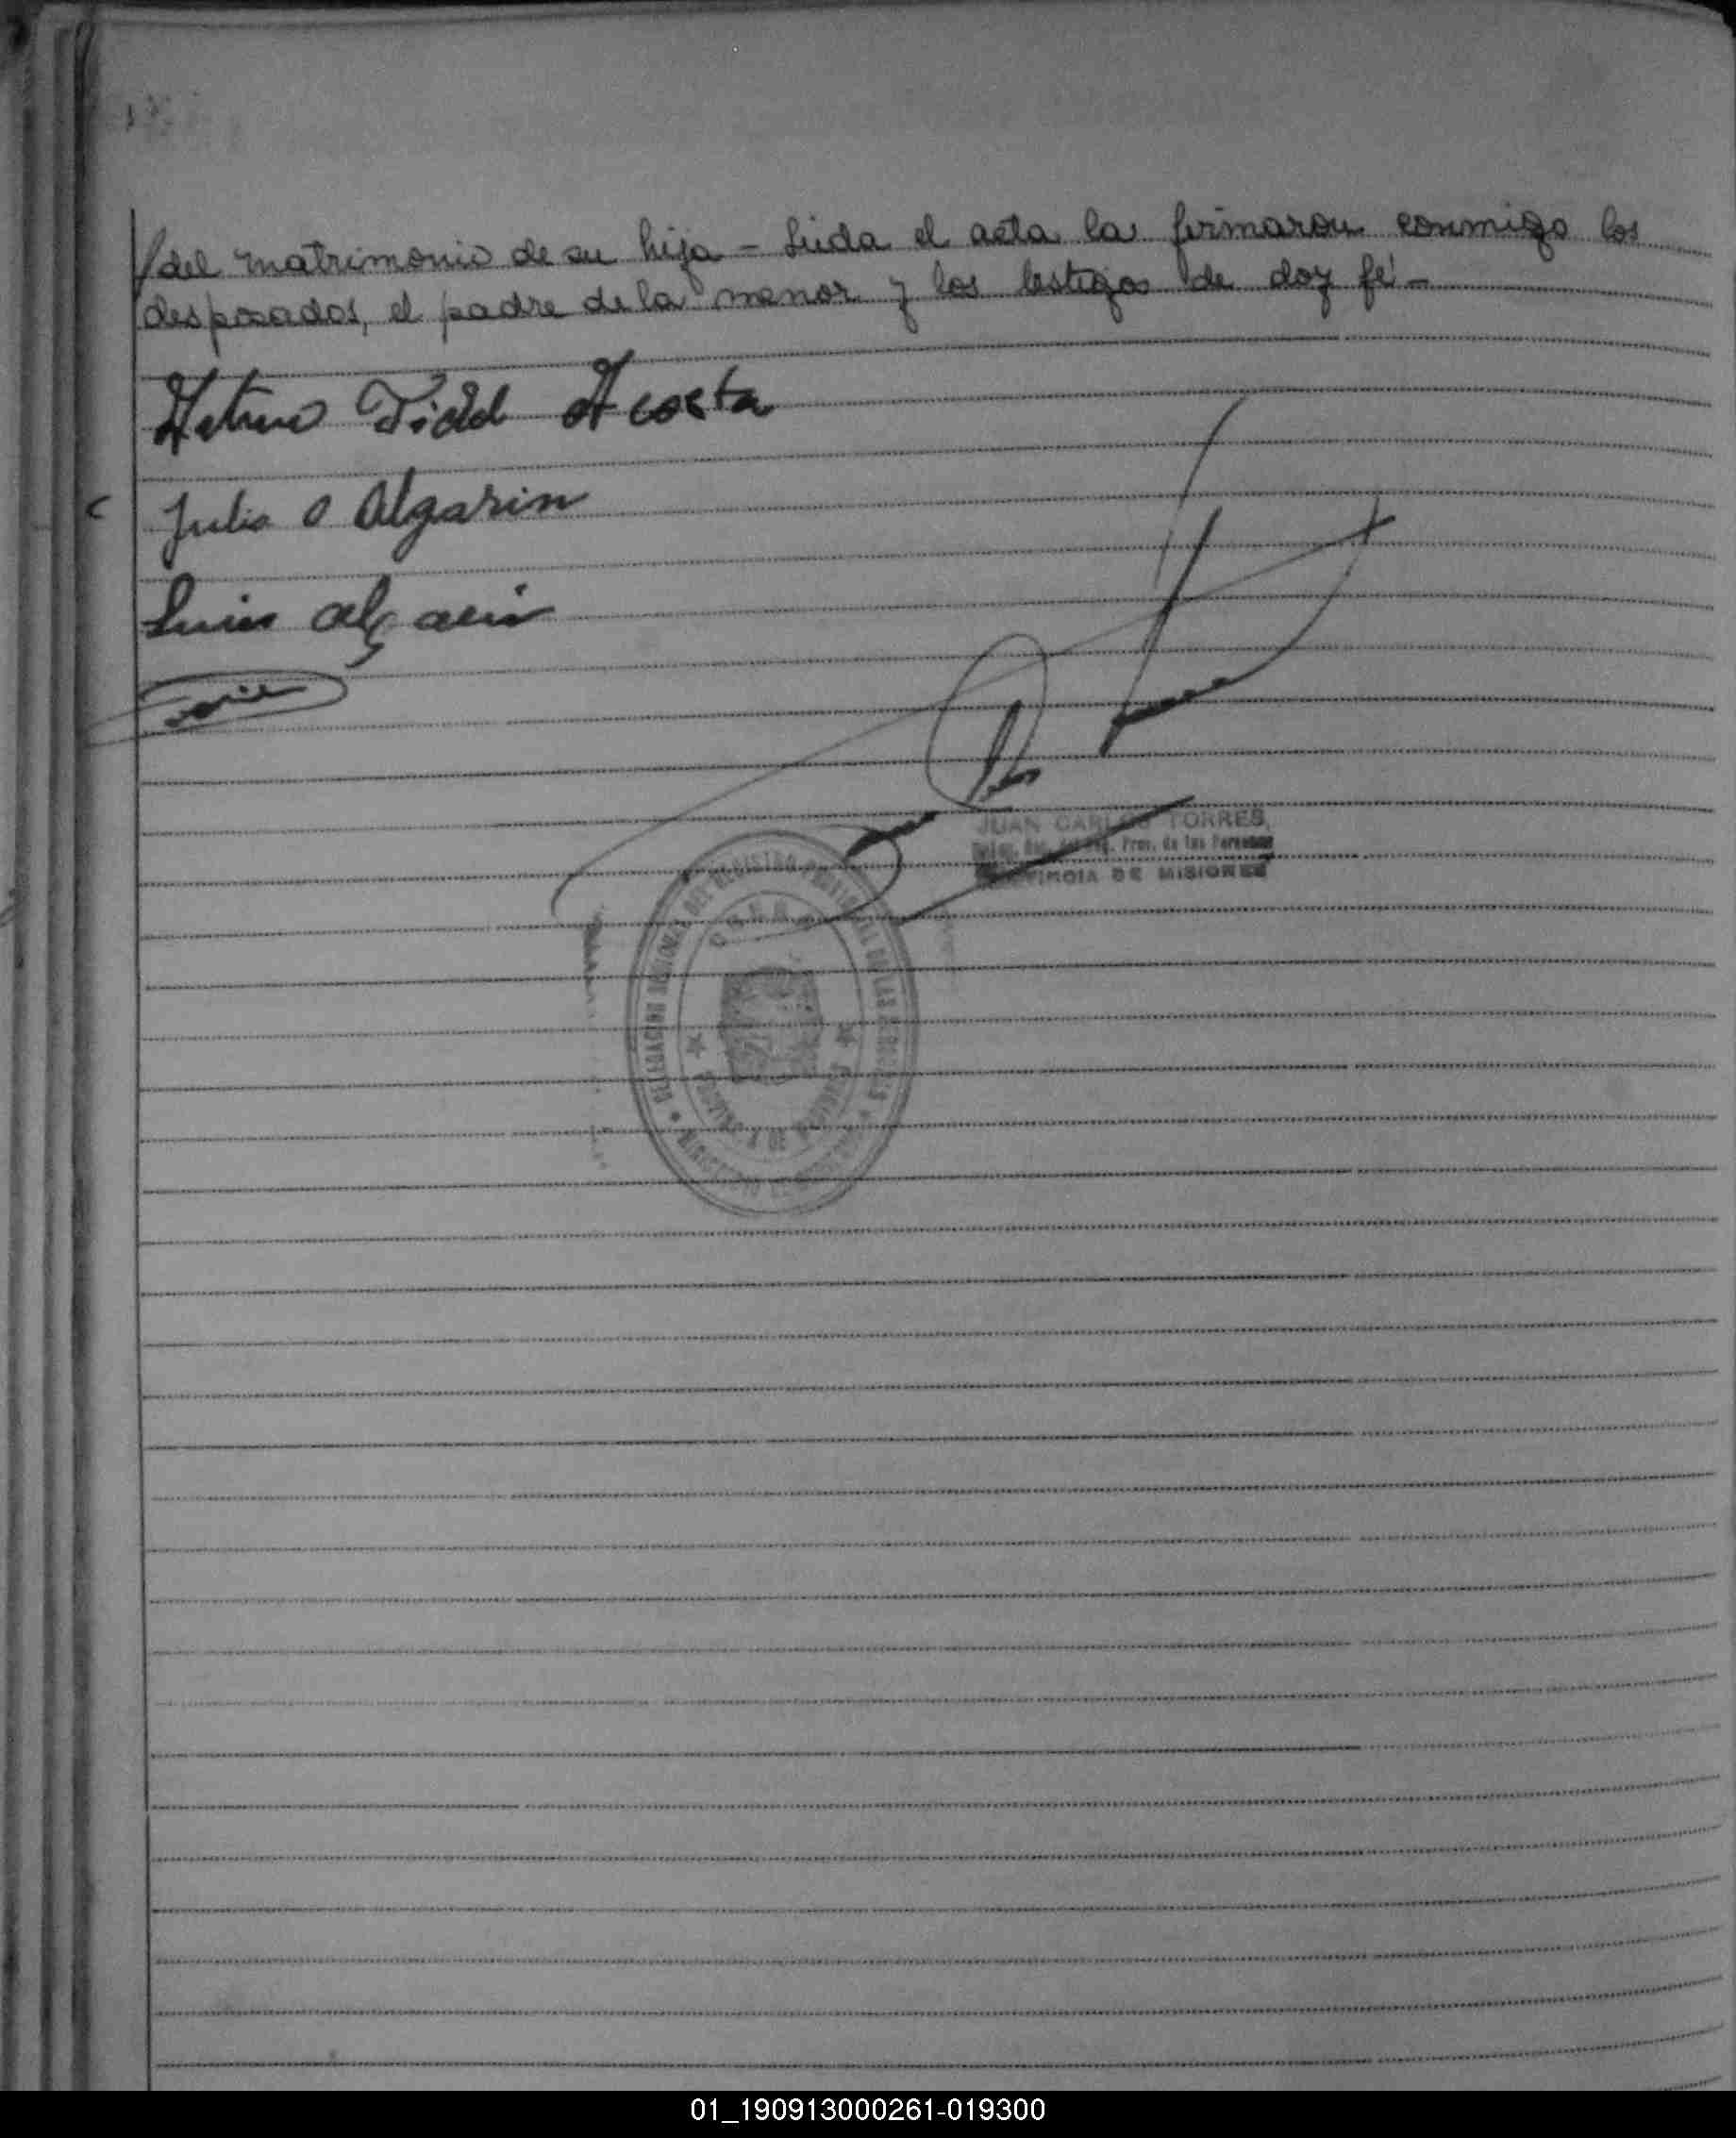 del matrimonio de su hija - Leida el acta la firmaron conmigo los
desposados, el padre de la menor y los testigos de doy fé -
Arturo Fidel Acosta
Julia O Algarin
Luis Algarin
JUAN CARLOS TORRES,
Prov. de las Personas
PROVINCIA DE MISIONES
DELEGACION REGIONAL DEL REGISTRO PROVINCIAL DE LAS PERSONAS
PROVINCIA DE MISIONES
01_190913000261-019300